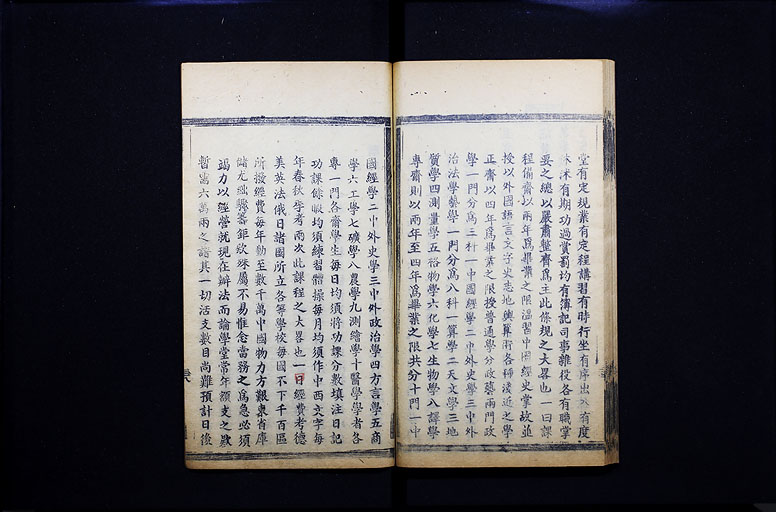 堂有定規業有定程講習有時行坐有序出入有度
休沐有期功過賞罰均有簿記司事雜役各有職掌
要之總以嚴肅整齊爲主此條規之大畧也一曰課
程備齋以兩年爲畢業之限溫習中國經史掌故並
授以外國語言文字史志地輿算術各種淺近之學
正齋以四年爲畢業之限授普通學分政藝兩門政
學一門分爲三科一中國經學二中外史學三中外
治法學藝學一門分爲八科一算學二天文學三地
質學四測量學五格物學六化學七生物學八譯學
專齋則以兩年至四年爲畢業之限共分十門一中
國經學二中外史學三中外政治學四方言學五商
學六工學七礦學八農學九測繪學十醫學學者各
專一門各齋學生每日均須將功課分數填注日記
功課餘暇均須練習體操每月均須作中西文字每
年春秋季考兩次此課程之大畧也一曰經費考德
美英法俄日諸國所立各等學校每國不下千百區
所撥經費每年動至數千萬中國物力方艱東省庫
儲尤絀驟籌鉅欵殊屬不易惟念當務之爲急必須
竭力以經營就現在辦法而論學堂常年額支之欵
暫需六萬兩之譜其一切活支數目尚難預計日後